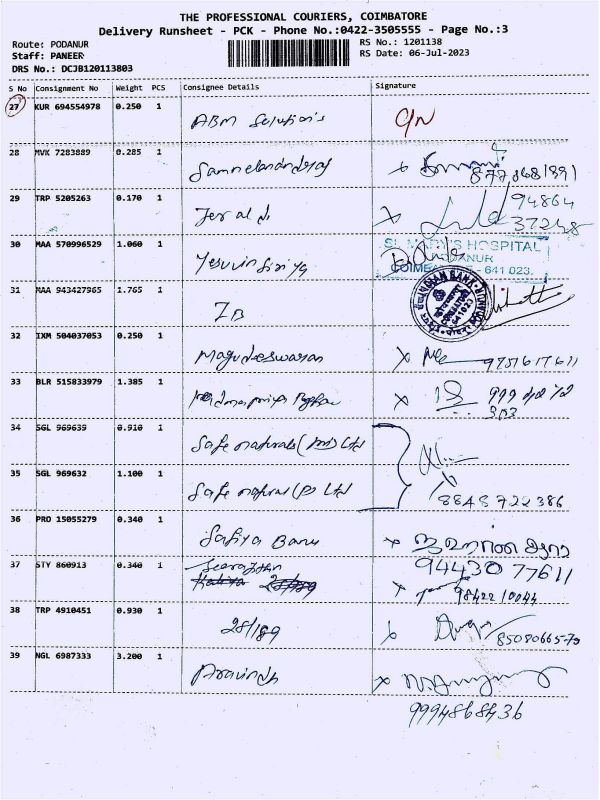 THE PROFESSIONAL COURIERS, COIMBATORE
Delivery Runsheet - PCK - Phone No.:0422-3505555 - Page No.:3
Route: PODANUR RS No.: 1201138
Staff: PANEER RS Date: 06-Jul-2023
DRS No.: DCJB120113803
S No Consignment No Weight PCS Consignee Details Signature
27 KUR 694554978 0.250 1 ABM Solution's
28 MVK 7283889 0.285 1
29 TRP 5205263 0.170 1 Jerald 94864
37248
30 MAA 570996529 1.060 1 Yesuvin Siriya ST. MARY'S HOSPITAL
PODANUR
COIMBATORE - 641 023.
31 MAA 943427965 1.765 1 IB INDIAN BANK 641023
32 IXM 504037053 0.250 1 Magudeswaran 9751617611
33 BLR 515833979 1.385 1
34 SGL 969639 0.910 1 Safe naturals (P) Ltd
35 SGL 969632 1.100 1 Safe natural (P) Ltd 8848722386
36 PRO 15055279 0.340 1 Safiya Banu
94430 77611
37 STY 860913 0.340 1 98422 10044
38 TRP 4910451 0.930 1 28/189 85080665-73
39 NGL 6987333 3.200 1 Aravindh
9994868436